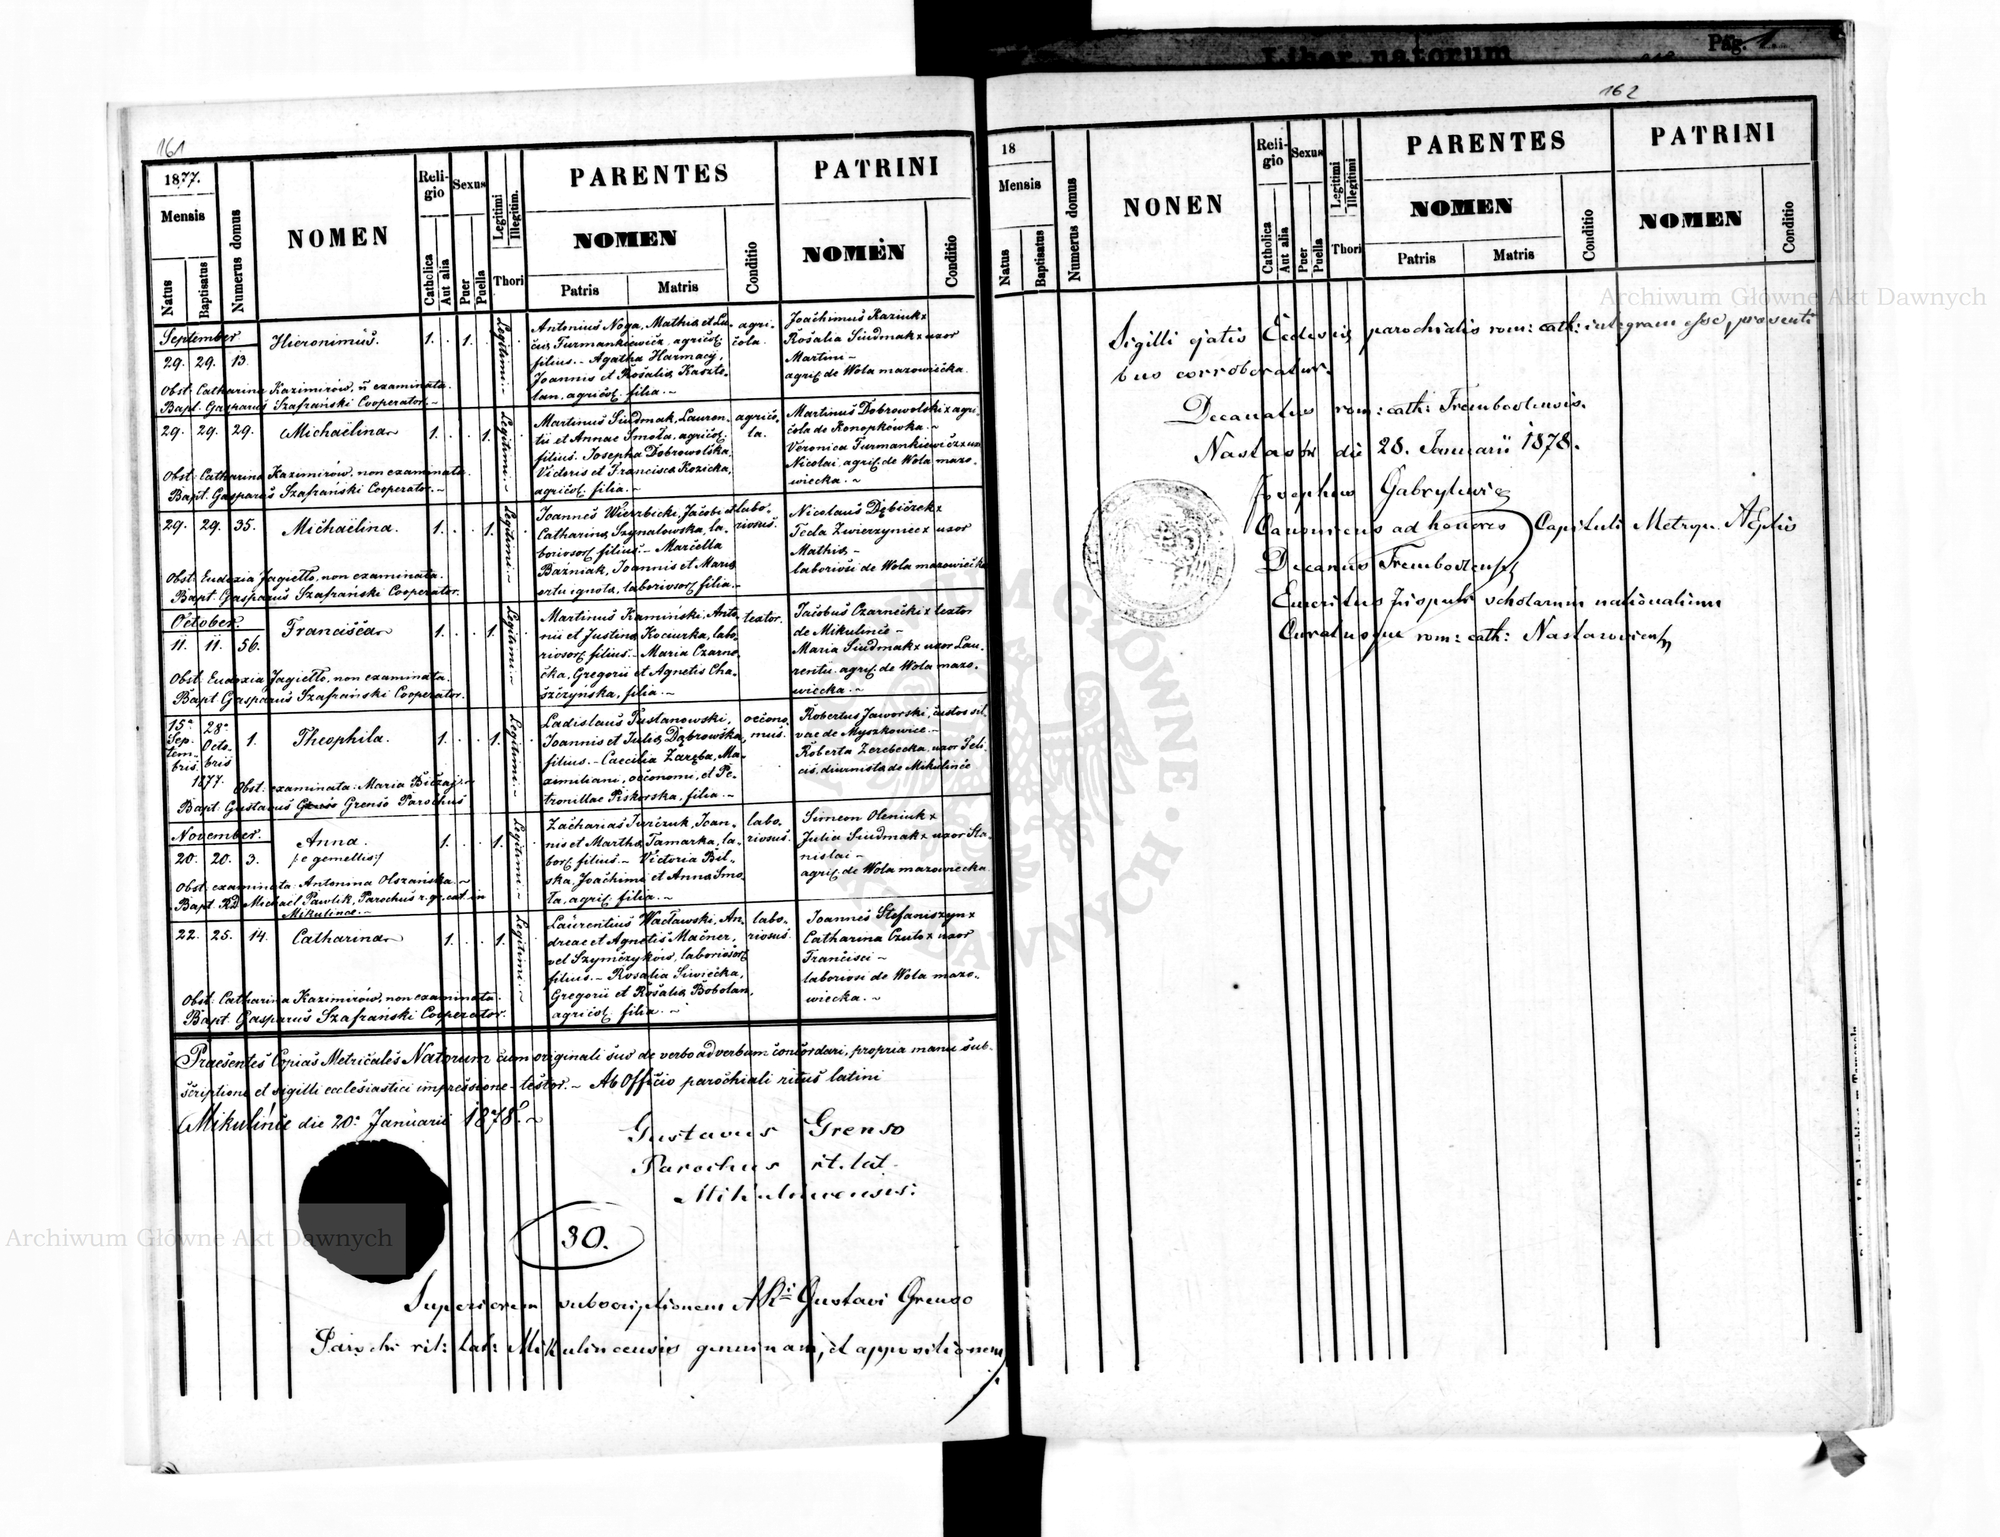 Liber natorum
Pag. 1.
161
1877.
Mensis
Natus
Baptisatus
Numerus domus
NOMEN
Religio
Catholica
Aut alia
Sexus
Puer
Puella
Legitimi
Illegitim.
Thori
PARENTES
NOMEN
Patris
Matris
Conditio
PATRINI
NOMEN
Conditio
September
29. 29. 13.
Hieronimus.
1. . 1. .
Legitimi
Antonius Noga, Mathiae et Lu-
ciae Furmankiewicz, agricol.
filius. – Agatha Harmacij,
Joannis et Rosaliae Kaszte-
lan, agricol. filia. –
agri-
cola.
Joachimus Kaziuk x
Rosalia Siudmak x uxor
Martini –
agric. de Wola mazowiecka.
Obst. Catharina Kazimirów, ñ examinata.
Bapt. Gasparus Szafrański Cooperator. –
29. 29. 29.
Michaëlina
1. . . 1.
Legitimi
Martinus Siudmak, Lauren-
tii et Annae Smoła, agricol.
filius. Josepha Dobrowolska,
Victoris et Francisca Kozicka,
agricol. filia. –
agrico-
la.
Martinus Dobrowolski x agri-
cola de Konopkówka. –
Veronica Furmankiewicz x uxor
Nicolai, agric. de Wola mazo-
wiecka. –
Obst. Catharina Kazimirów, non examinata.
Bapt. Gasparus Szafrański Cooperator. –
29. 29. 35.
Michaëlina.
1. . . 1.
Legitimi
Joannes Wierzbicki, Jacobi et
Catharina Szynalowska, la-
boriosor. filius. – Marcella
Baźniak, Joannis et Maria
ortu ignota, laboriosor. filia. –
labo-
riosus.
Nicolaus Dębiczek x
Tecla Zwierzyniec x uxor
Mathiae –
laboriosi de Wola mazowiecka
Obst. Eudoxia Jagiełło, non examinata.
Bapt. Gasparus Szafrański Cooperator.
October.
11. 11. 56.
Francisca
1. . . 1.
Legitimi
Martinus Kamiński, Anto-
nii et Justina Kociurka, labo-
riosor. filius. – Maria Czarne-
cka, Gregorii et Agnetis Cha-
szczynska, filia. –
textor.
Jacobus Czarnecki x textor
de Mikulince –
Maria Siudmak x uxor Lau-
rentii agric. de Wola mazo-
wiecka. –
Obst. Eudoxia Jagiełło, non examinata.
Bapt. Gasparus Szafrański Cooperator.
15a Sep-
tem-
bris
28a Octo-
bris
1877.
1.
Theophila.
1. . . 1.
Legitimi
Ladislaus Tustanowski,
Joannis et Julia Dąbrowska
filius. – Caecilia Zaręba, Ma-
ximiliani, oeconomi, et Pe-
tronillae Piskorska, filia. –
oecono-
mus.
Robertus Jaworski, custos sil-
vae de Myszkowice. –
Roberta Zerebecka, uxor Feli-
cis, diurnista de Mikulince
Obst. examinata: Maria Biczaj
Bapt. Gustavus Grenso Parochus
November.
20. 20. 3.
Anna.
/: e gemellis :/
1. . . 1.
Legitimi
Zacharias Jurczuk, Joan-
nis et Martha Tamarka, la-
bor. filius. – Victoria Bil-
ska, Joachimi et Anna Smo-
ła, agric. filia. –
labo-
riosus.
Simeon Oleniuk x
Julia Siudmak x uxor Sta-
nislai –
agric. de Wola mazowiecka
Obst. examinata: Antonina Olszańska –
Bapt. RD Michael Pawlik, Parochus r. gr. cat. in
Mikulince. –
22. 25. 14.
Catharina
1. . . 1.
Legitimi
Laurentius Wacławski, An-
dreae et Agnetis Macner,
vel Szymczyków, laboriosor.
filius. – Rosalia Siwiecka,
Gregorii et Rosalia Bobotan,
agricol. filia. –
labo-
riosus.
Joannes Stefaniszyn x
Catharina Czuło x uxor
Francisci –
laboriosi de Wola mazo-
wiecka. –
Obst. Catharina Kazimirów, non examinata.
Bapt. Gasparus Szafrański Cooperator.
Praesentes Copias Metricales Natorum cum originali suo de verbo ad verbum concordari, propria manu sub-
scriptione et sigilli ecclesiastici impressione testor. – Ab Officio parochiali ritus latini
Mikulince die 20. Januarii 1878. –
Gustavus Grenso
Parochus rt. lat.
Mikulincensis.
30.
Superiorem subscriptionem ARi Gustavi Grenso
Parochi rit: lat: Mikulincensis genuinam, et appositionem
162
18
Mensis
Natus
Baptisatus
Numerus domus
NONEN
Religio
Catholica
Aut alia
Sexus
Puer
Puella
Legitimi
Illegitimi
Thori
PARENTES
NOMEN
Patris
Matris
Conditio
PATRINI
NOMEN
Conditio
Sigilli ejatis Ecclesiae parochialis rom: cath: integram esse, praesenti
bus corroboratur.
Decanatus rom: cath: Trembovlensis.
Nastasów die 28. Januarii 1878.
Josephus Gabrylewicz
Canonicus ad honores Capituli Metrop.
Decanus Trembovlensis
Emeritus Inspector scholarum nationalium
Curatusque rom: cath: Nastasoviensis
Archiwum Główne Akt Dawnych
Archiwum Główne Akt Dawnych
ARCHIWUM GŁÓWNE AKT DAWNYCH